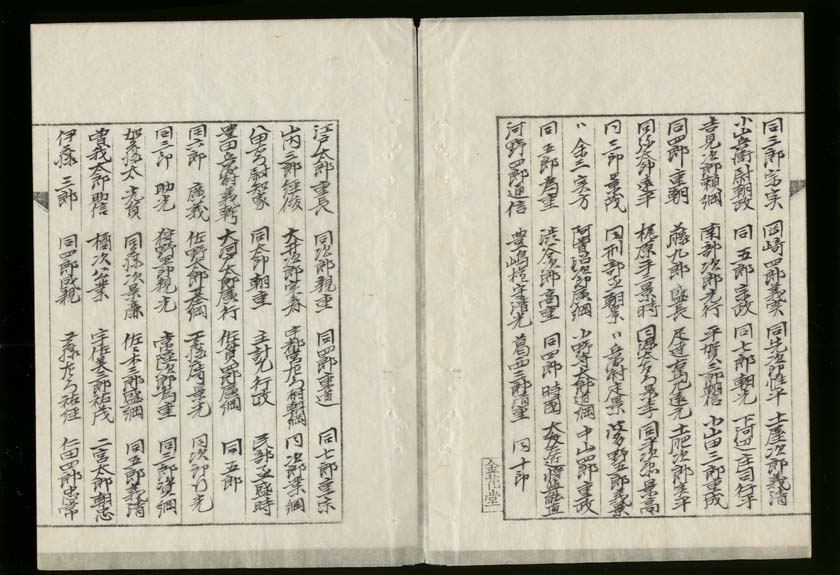 同三郎 宗実 岡崎四郎義実 同先次郎惟平 土屋次郎義清
小山兵衛尉朝政 同 五郎宗政 同七郎朝光 下河辺庄司行平
吉見次郎頼綱 南部次郎光行 平賀三郎朝信 小山田三郎重成
同四郎重朝 藤九郎盛長 足立右馬允遠元 土肥次郎実平
梶原平三景時 同平次景高
同二郎景茂 同刑部丞朝景 同兵衛尉定景 波多野五郎義景
阿曽沼次郎廣綱 小野寺太郎道綱 中山四郎重政
同五郎為重 渋谷次郎高重 同四郎時國
河野四郎通信 豊嶋権守清光 葛西三郎清重 同十郎
金花堂
江戸太郎重長 同次郎親重 同四郎重通 同七郎重宗
山内三郎経俊 大井次郎実春 宇都宮左衛門尉朝綱 同次郎業綱
八田右衛門尉知家 同太郎朝重 主計允行政 民部丞盛時
豊田兵衛尉義幹 大河戸太郎廣行 佐貫四郎廣綱 同五郎
同六郎 廣義 佐野太郎基綱 工藤庄司景光 同次郎行光
同三郎 助光 狩野五郎親光 常陸次郎為重 同三郎資綱
加藤太 光員 同藤次景廉 佐々木三郎盛綱 同五郎義清
曽我太郎助信 橘次公業 宇佐美太郎祐茂 二宮太郎朝忠
伊藤 三郎 同四郎成親 工藤左衛門祐経 仁田四郎忠常